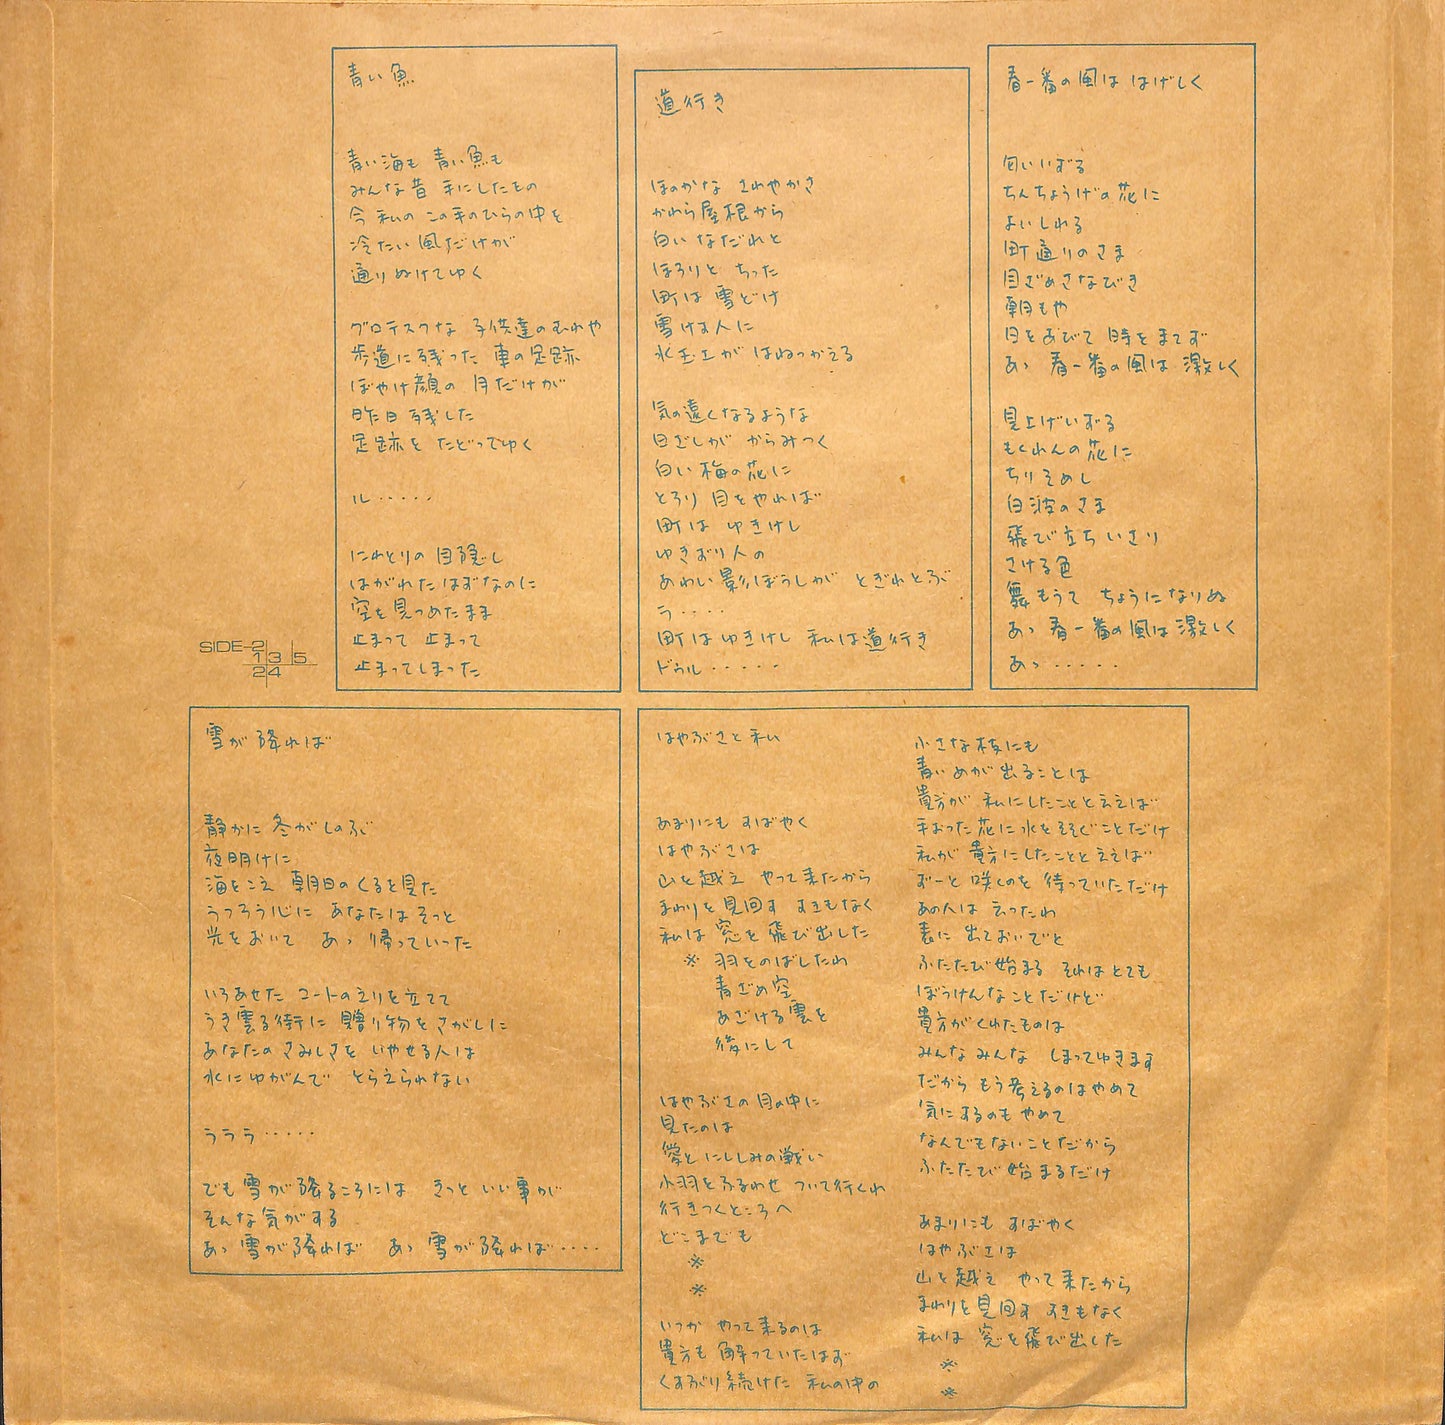 青い魚
青い海も 青い魚も
みんな昔 手にしたもの
今 私の この手のひらの中を
冷たい 風だけが
通りぬけてゆく
グロテスクな 子供達のむれや
歩道に残った 車の足跡
ぼやけ顔の 月だけが
昨日 残した
足跡を たどってゆく
ル・・・・・
にわとりの目隠し
はがれたはずなのに
空を見つめたまま
止まって 止まって
止まってしまった
道行き
ほのかな さわやかさ
かわら屋根から
白い なだれと
ほろりと ちった
町は 雪どけ
雪けは人に
水玉工が はねっかえる
気の遠くなるような
日ざしが からみつく
白い 梅の花に
とろり 目をやれば
町は ゆきけし
ゆきおり人の
あわい影ぼうしが とぎれとぶ
ラ・・・・
町はゆきけし 私は道行き
ドゥル・・・・・
春一番の風は はげしく
匂いいずる
ちんちょうげの花に
よいしれる
町通りのさま
目ざめさなびき
朝もや
日をあびて 時をまてず
あゝ 春一番の風は 激しく
見上げいずる
もくれんの花に
ちりそめし
白波のさま
飛び立ち いさり
さける色
舞もうて ちょうになりぬ
あゝ 春一番の風は激しく
あゝ・・・・・
SIDE-2
1 3 5
2 4
雪が降れば
静かに 冬がしのぶ
夜明けに
海をこえ 朝日のくるを見た
うつろう心に あなたはそっと
光をおいて あゝ 帰っていった
いろあせた コートのえりを立てて
うき雲る街に 贈り物をさがしに
あなたの さみしさを いやせる人は
水にゆがんで とらえられない
ラララ・・・・・
でも 雪が降るころには きっと いい事が
そんな気がする
あゝ 雪が降れば あゝ 雪が降れば・・・・
はやぶさと私
あまりにも すばやく
はやぶさは
山を越え やって来たから
まわりを見回す すきもなく
私は 窓を飛び出した
※ 羽をのばしたわ
青ざめ空
あざける雲を
後にして
はやぶさの目の中に
見たのは
愛とにくしみの戦い
小羽をふるわせ ついて行くわ
行きつくところへ
どこまでも
※
※
いつか やって来るのは
貴方も 解っていたはず
くすぶり続けた 私の中の
小さな枝にも
青いめが出ることは
貴方が 私にしたことと云えば
手おった花に水をそそぐことだけ
私が 貴方にしたことと云えば
ずーと 咲くのを 待っていただけ
あの人は 云ったわ
表に 出ておいでと
ふたたび始まる それはとても
ぼうけんなことだけど
貴方がくれたものは
みんなみんな しまってゆきます
だから もう考えるのはやめて
気にするのも やめて
なんでもないことだから
ふたたび 始まるだけ
あまりにも すばやく
はやぶさは
山を越え やって来たから
まわりを見回す すきもなく
私は 窓を飛び出した
※
※